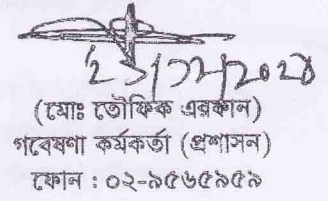 (মোঃ তৌফিক এরফান)
গবেষণা কর্মকর্তা (প্রশাসন)
ফোন : ০২-৯৫৬৫৯৫৯